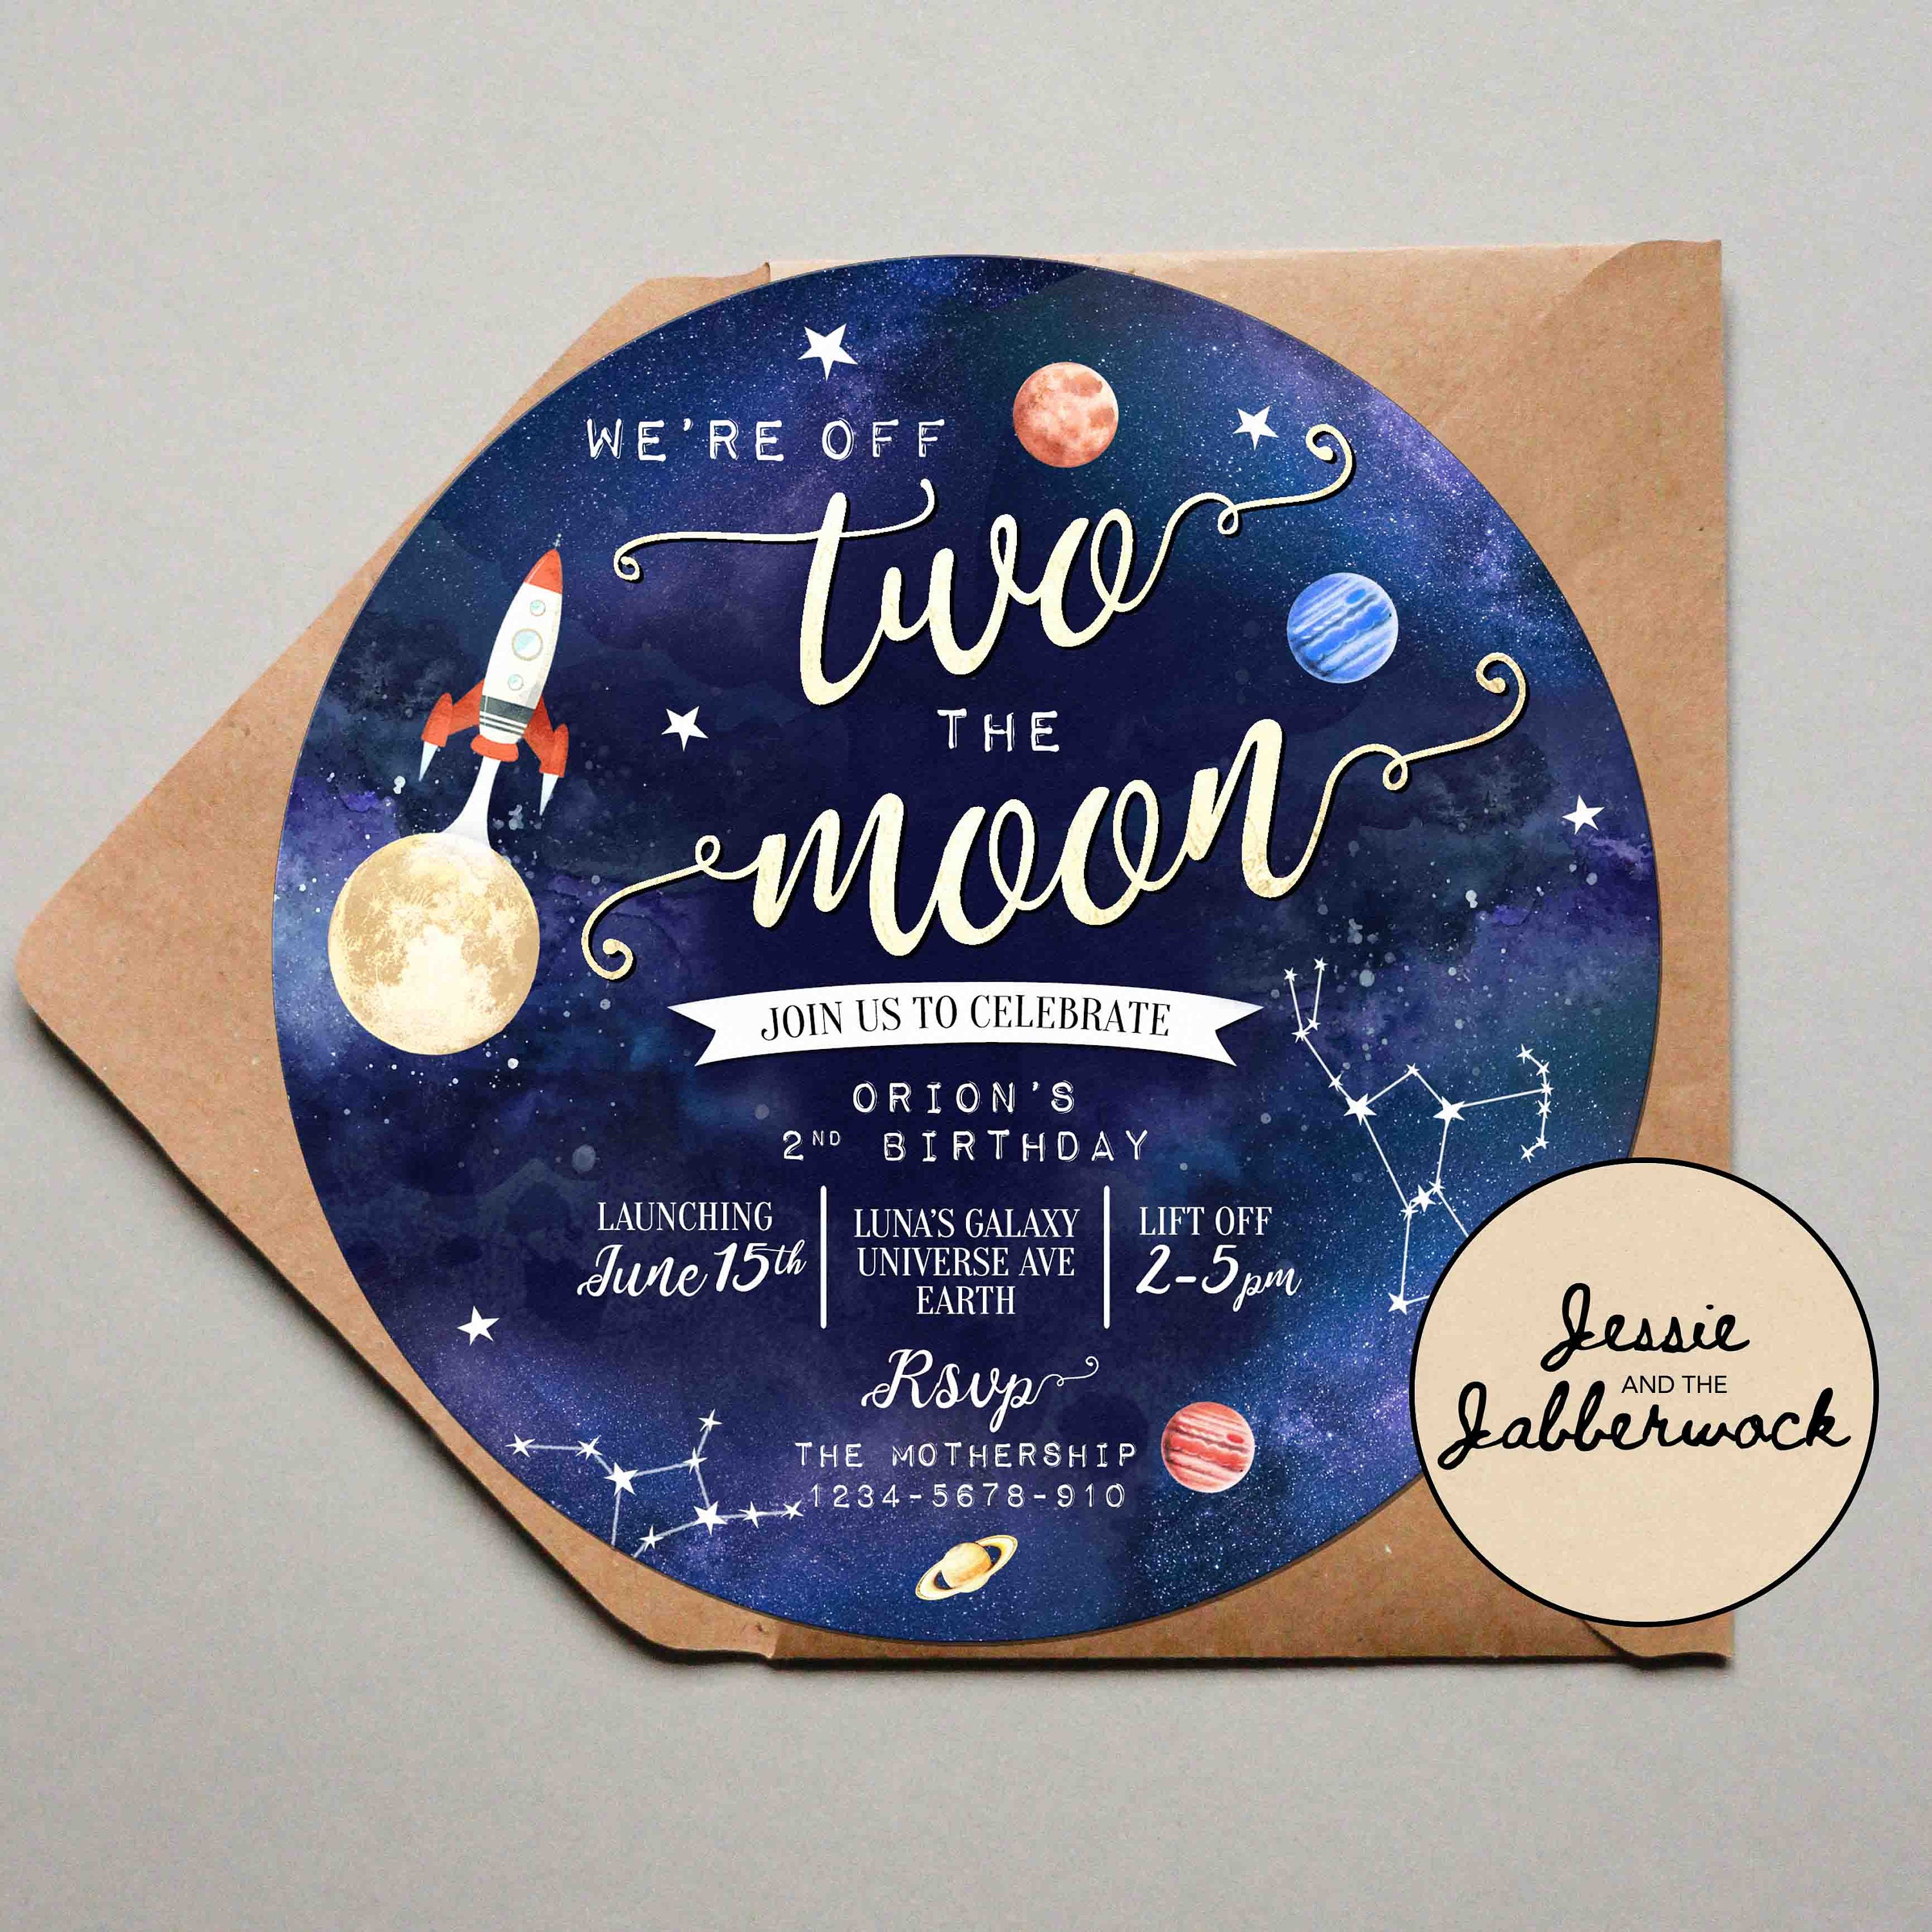 WE'RE OFF
two
THE
moon
JOIN US TO CELEBRATE
ORION'S
2ND BIRTHDAY
LAUNCHING
June 15th
LUNA'S GALAXY
UNIVERSE AVE
EARTH
LIFT OFF
2-5pm
Rsvp
THE MOTHERSHIP
1234-5678-910
Jessie
AND THE
Jabberwock